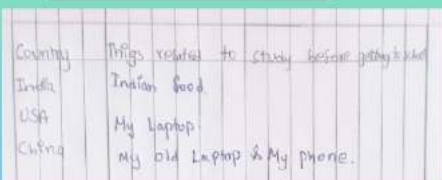 Country Things related to study before getting to school
India Indian food.
USA My Laptop.
China My old Laptop & My phone.